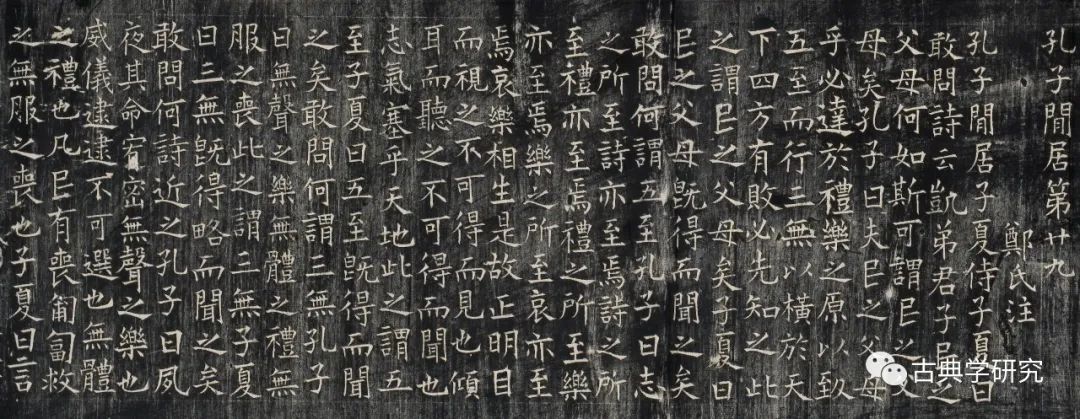 孔子閒居第廿九
鄭氏注
孔子閒居子夏侍子夏曰
敢問詩云凱弟君子民之
父母何如斯可謂民之父
母矣孔子曰夫民之父母
乎必達於禮樂之原以致
五至而行三無以橫於天
下四方有敗必先知之此
之謂民之父母矣子夏曰
民之父母既得而聞之矣
敢問何謂五至孔子曰志
之所至詩亦至焉詩之所
至禮亦至焉禮之所至樂
亦至焉樂之所至哀亦至
焉哀樂相生是故正明目
而視之不可得而見也傾
耳而聽之不可得而聞也
志氣塞乎天地此之謂五
至子夏曰五至既得而聞
之矣敢問何謂三無孔子
曰無聲之樂無體之禮無
服之喪此之謂三無子夏
曰三無既得略而聞之矣
敢問何詩近之孔子曰夙
夜其命宥密無聲之樂也
威儀逮逮不可選也無體
之禮也凡民有喪匍匐救
之無服之喪也子夏曰言
古典学研究